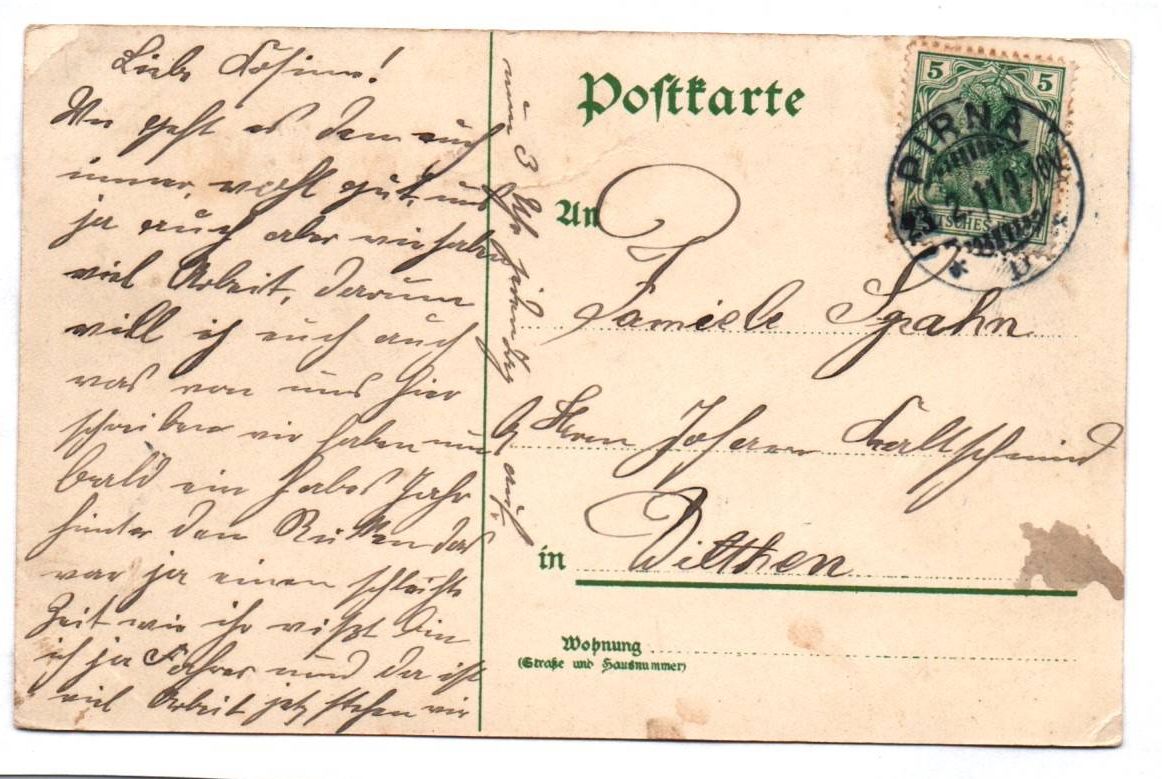 Liebe Cosine!
Wie geht es den euch
immer, wohl gut, uns
ja auch aber wir haben
viel Arbeit, darum
will ich euch auch
was von uns hier
schreiben wir haben nun
bald ein habes Jahr
hinter den Rükken das
war ja einen schlechte
Zeit wie ihr wißt bin
ich ja Fahrer und da ist
viel Arbeit jetz stehen wir
um 3 Uhr jeden Tag auf.
Postkarte
5 5
DEUTSCHES REICH
PIRNA
23.2.11.
An
Familie Spahn
Herrn Johann Kaltschmid
in Wilthen
Wohnung
(Straße und Hausnummer)